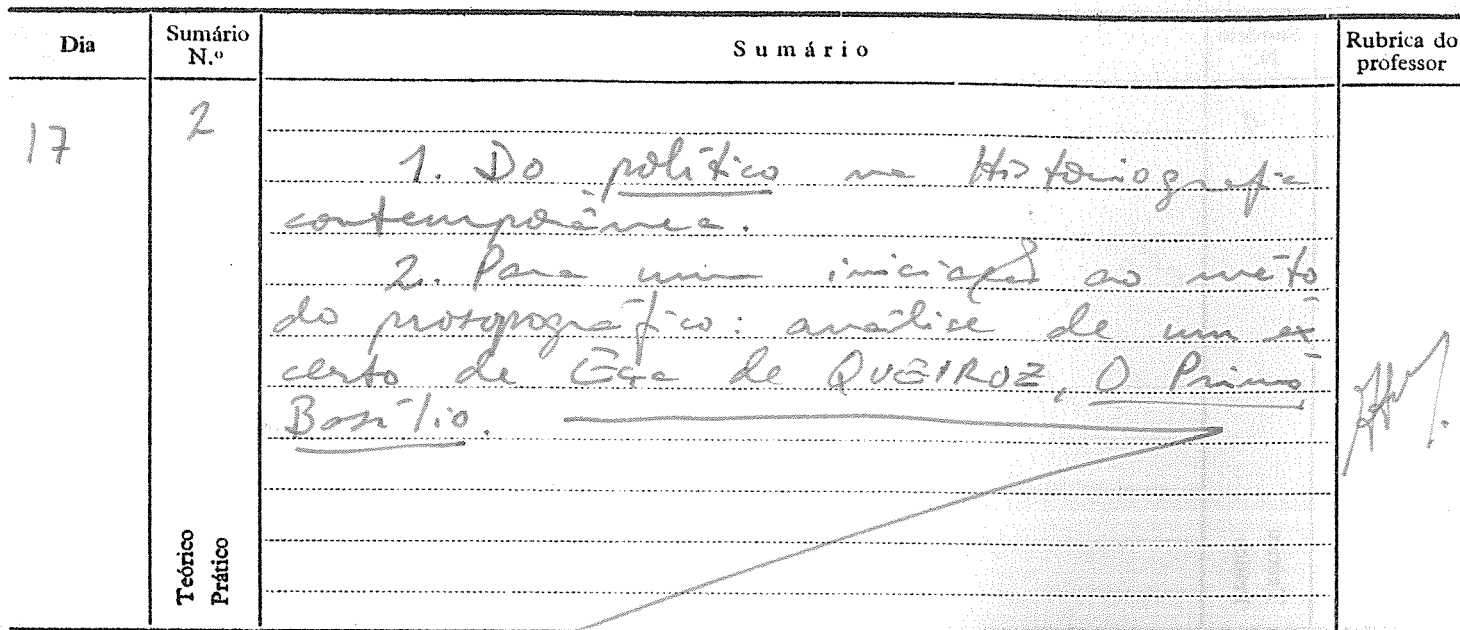 Dia
Sumário
N.º
Sumário
Rubrica do
professor
17
2
1. Do político na Historiografia
contemporânea.
2. Para um iniciação ao méto
do prosopográfico: análise de um ex
certo de Eça de QUEIROZ, O Primo
Basílio.
Teórico
Prático